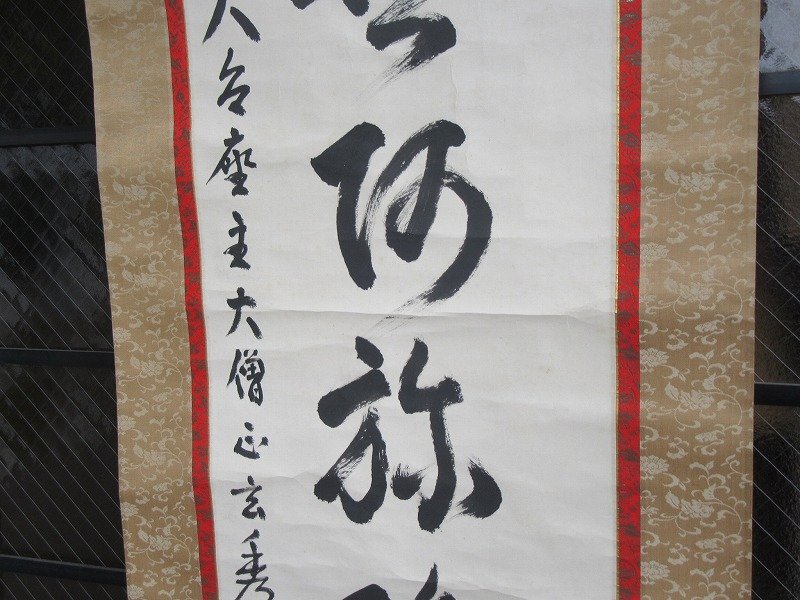 阿弥
天台座主大僧正玄秀